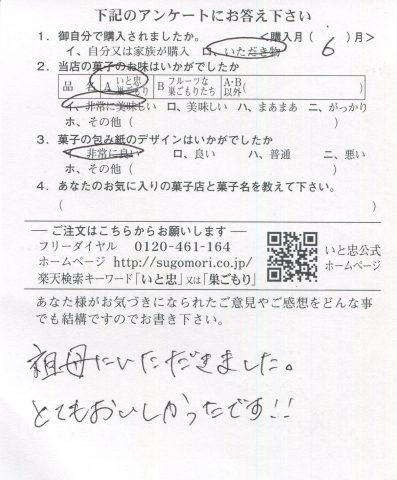 下記のアンケートにお答え下さい
1. 御自分で購入されましたか。 <購入月( 6 )月>
イ、自分又は家族が購入 ロ、いただき物
2. 当店の菓子のお味はいかがでしたか
品 名 A いと忠 巣ごもり B フルーツな 巣ごもりたち A・B 以外( )
イ、非常に美味しい ロ、美味しい ハ、まあまあ ニ、がっかり
ホ、その他( )
3. 菓子の包み紙のデザインはいかがでしたか
イ、非常に良い ロ、良い ハ、普通 ニ、悪い
ホ、その他( )
4. あなたのお気に入りの菓子店と菓子名を教えて下さい。
( )
― ご注文はこちらからお願いします ―
フリーダイヤル 0120-461-164
ホームページ http://sugomori.co.jp/
楽天検索キーワード「いと忠」又は「巣ごもり」
いと忠公式
ホームページ
あなた様がお気づきになられたご意見やご感想をどんな事
でも結構ですのでお書き下さい。
祖母にいただきました。
とてもおいしかったです!!